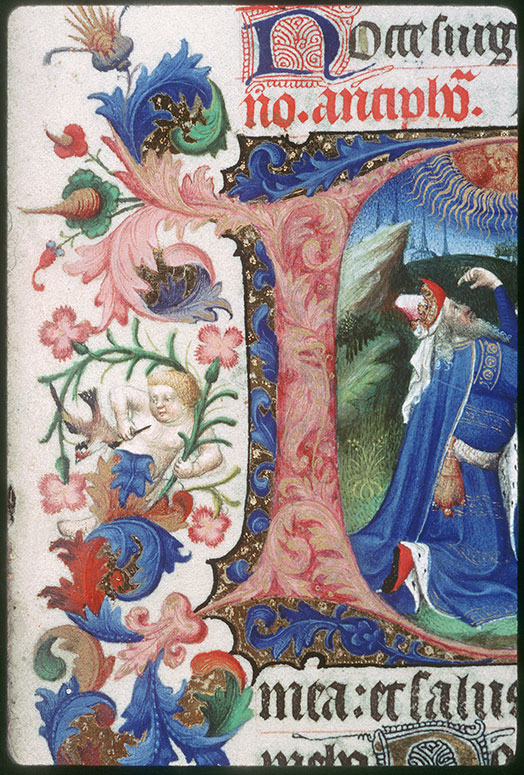 Nocte surg
no. antiph̄o.
D
mea: et salus